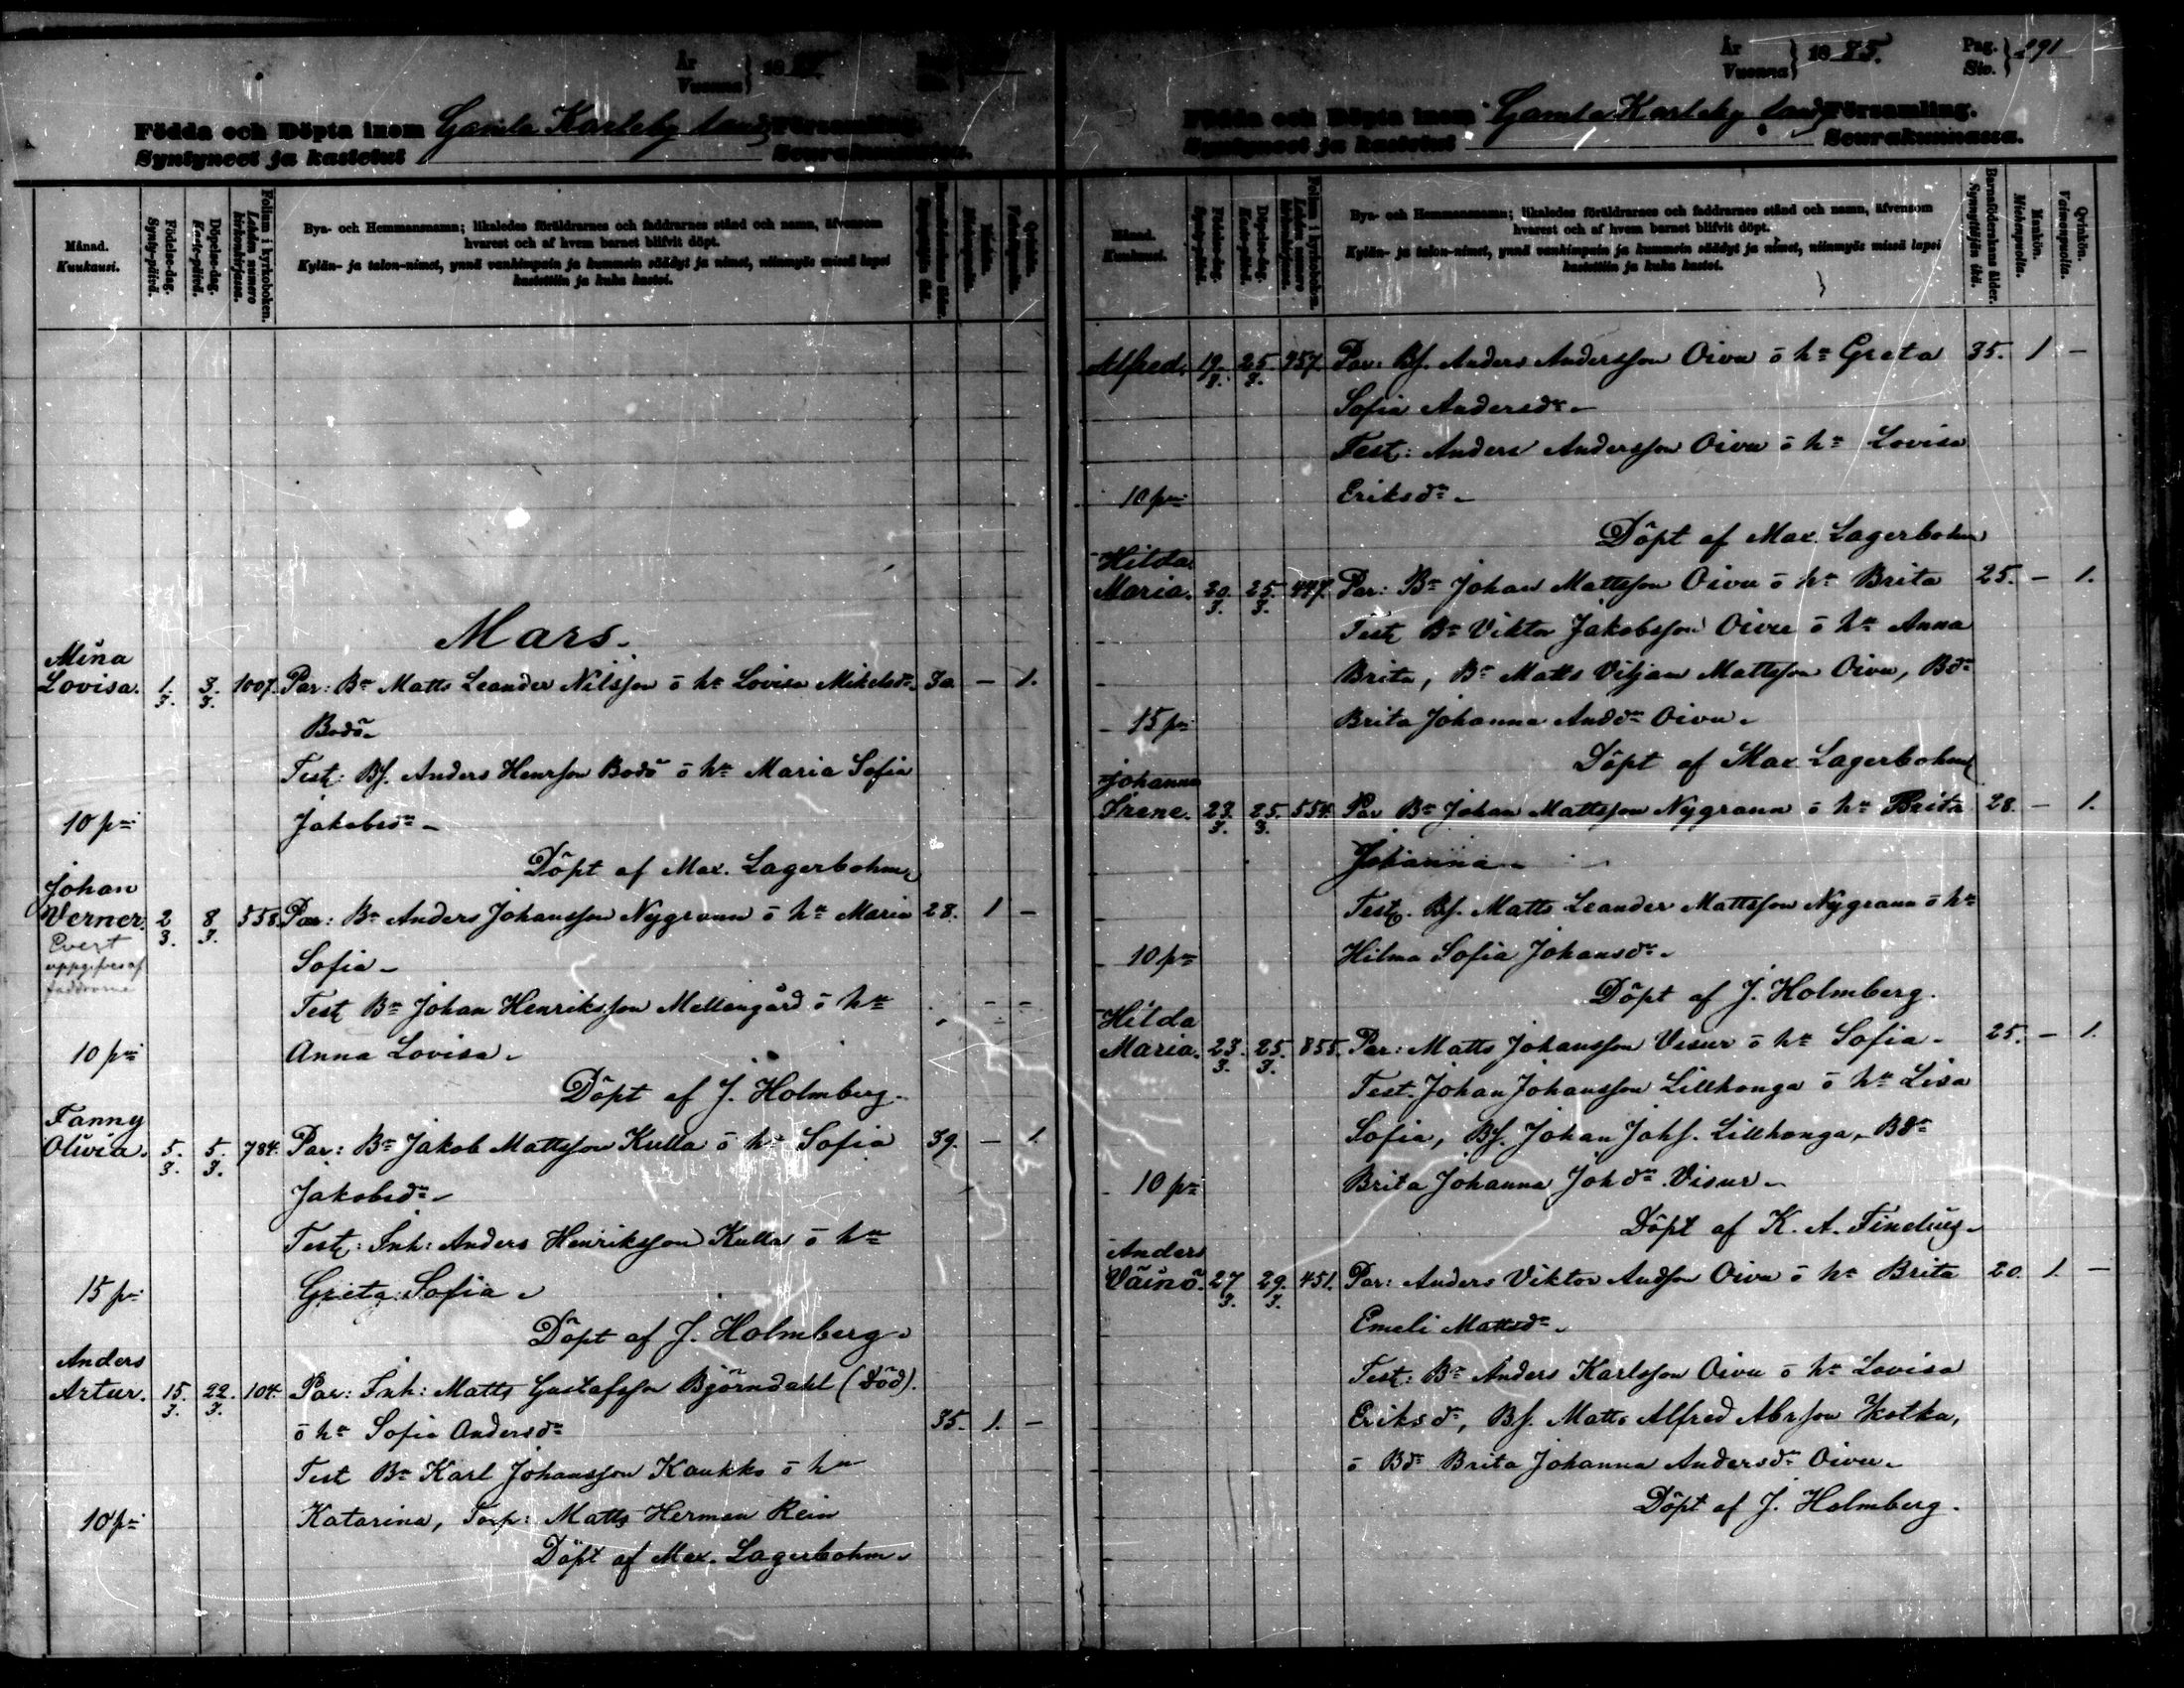 År
Vuonna } 18
Födda och Döpta inom Gamla Karleby lands Församling.
Syntyneet ja kastetut Seurakunnassa.
Månad.
Kuukausi.
Födelse-dag.
Synty-päivä.
Döpelse-dag.
Kaste-päivä.
Folium i kyrkoboken.
Lehden numero kirkonkirjassa.
Bya- och Hemmansnamn; likaledes föräldrarnes och faddrarnes stånd och namn, äfvensom
hvarest och af hvem barnet blifvit döpt.
Kylän- ja talon-nimet, ynnä vanhimpain ja kummein säädyt ja nimet, niinmyös missä lapsi
kastettiin ja kuka kastoi.
Mars.
Mina
Lovisa. 1/3. 3/3. 1007. Par: Bn Matts Leander Nilsson o hu Lovisa Mikelsdr 30 — 1.
Bodö
Test: Bf. Anders Henrsson Bodö o hu Maria Sofia
10 pni Jakobsdr
Döpt af Max. Lagerbohm
Johan
Verner. 2/3. 8/3. 558. Par: Bn Anders Johansson Nygrann o hu Maria 28. 1 —
Evert
uppgifves af
faddrarne
Sofia
Test Bn Johan Henriksson Mellangård o hu
10 pni Anna Lovisa
Döpt af J. Holmberg
Fanny
Olivia. 5/3. 5/3. 784. Par: Bn Jakob Mattsson Kulla o hu Sofia 39. — 1.
Jakobsdr
Test: Inh: Anders Henriksson Kulla o hu
15 pni Greta Sofia
Döpt af J. Holmberg
Anders
Artur. 15/3. 22/3. 104. Par: Inh: Matts Gustafsson Björndahl (Död).
o hu Sofia Andersdr 35. 1. —
Test Bn Karl Johansson Kaukko o hu
10 pni Katarina, Torp: Matts Herman Rein
Döpt af Max. Lagerbohm
År
Vuonna } 1885.
Pag.
Siv. } 291
Födda och Döpta inom Gamla Karleby lands Församling.
Syntyneet ja kastetut Seurakunnassa.
Månad.
Kuukausi.
Födelse-dag.
Synty-päivä.
Döpelse-dag.
Kaste-päivä.
Folium i kyrkoboken.
Lehden numero kirkonkirjassa.
Bya- och Hemmansnamn; likaledes föräldrarnes och faddrarnes stånd och namn, äfvensom
hvarest och af hvem barnet blifvit döpt.
Kylän- ja talon-nimet, ynnä vanhimpain ja kummein säädyt ja nimet, niinmyös missä lapsi
kastettiin ja kuka kastoi.
Barnaföderskans ålder.
Synnyttäjän ikä.
Mankön.
Miehenpuolta.
Qvinkön.
Vaimonpuolta.
Alfred. 19/3. 25/3. 957. Par: Bf. Anders Andersson Oivu o hu Greta 35. 1 —
Sofia Andersdr
Test: Anders Andersson Oivu o hu Lovisa
10 pni Eriksdr
Döpt af Max Lagerbohm
Hilda
Maria. 20/3. 25/3. 447. Par: Bn Johan Mattsson Oivu o hu Brita 25. — 1.
Test Bn Viktor Jakobsson Oivu o hu Anna
Brita, Bn Matts Viljam Mattsson Oivu, Bdr
15 pni Brita Johanna Anddr Oivu
Döpt af Max Lagerbohm
Johanna
Irene. 23/3. 25/3. 554. Par Bn Johan Mattsson Nygrann o hu Brita 28. — 1.
Johanna
Test. Bf. Matts Leander Mattsson Nygrann o hu
10 pni Hilma Sofia Johansdr
Döpt af J. Holmberg.
Hilda
Maria. 23/3. 25/3. 855. Par: Matts Johansson Visur o hu Sofia 25. — 1.
Test. Johan Johansson Lillhonga o hu Lisa
Sofia, Bf. Johan Johs. Lillhonga, Bdr
10 pni Brita Johanna Johdr Visur
Döpt af K. A. Finelius
Anders
Väinö. 27/3. 29/3. 451. Par: Anders Viktor Andsson Oivu o hu Brita 20. 1. —
Emeli Mattsdr
Test: Bn Anders Karlsson Oivu o hu Lovisa
Eriksdr, Bf. Matts Alfred Abrsson Kotka,
o Bdr Brita Johanna Andersdr Oivu
Döpt af J. Holmberg.